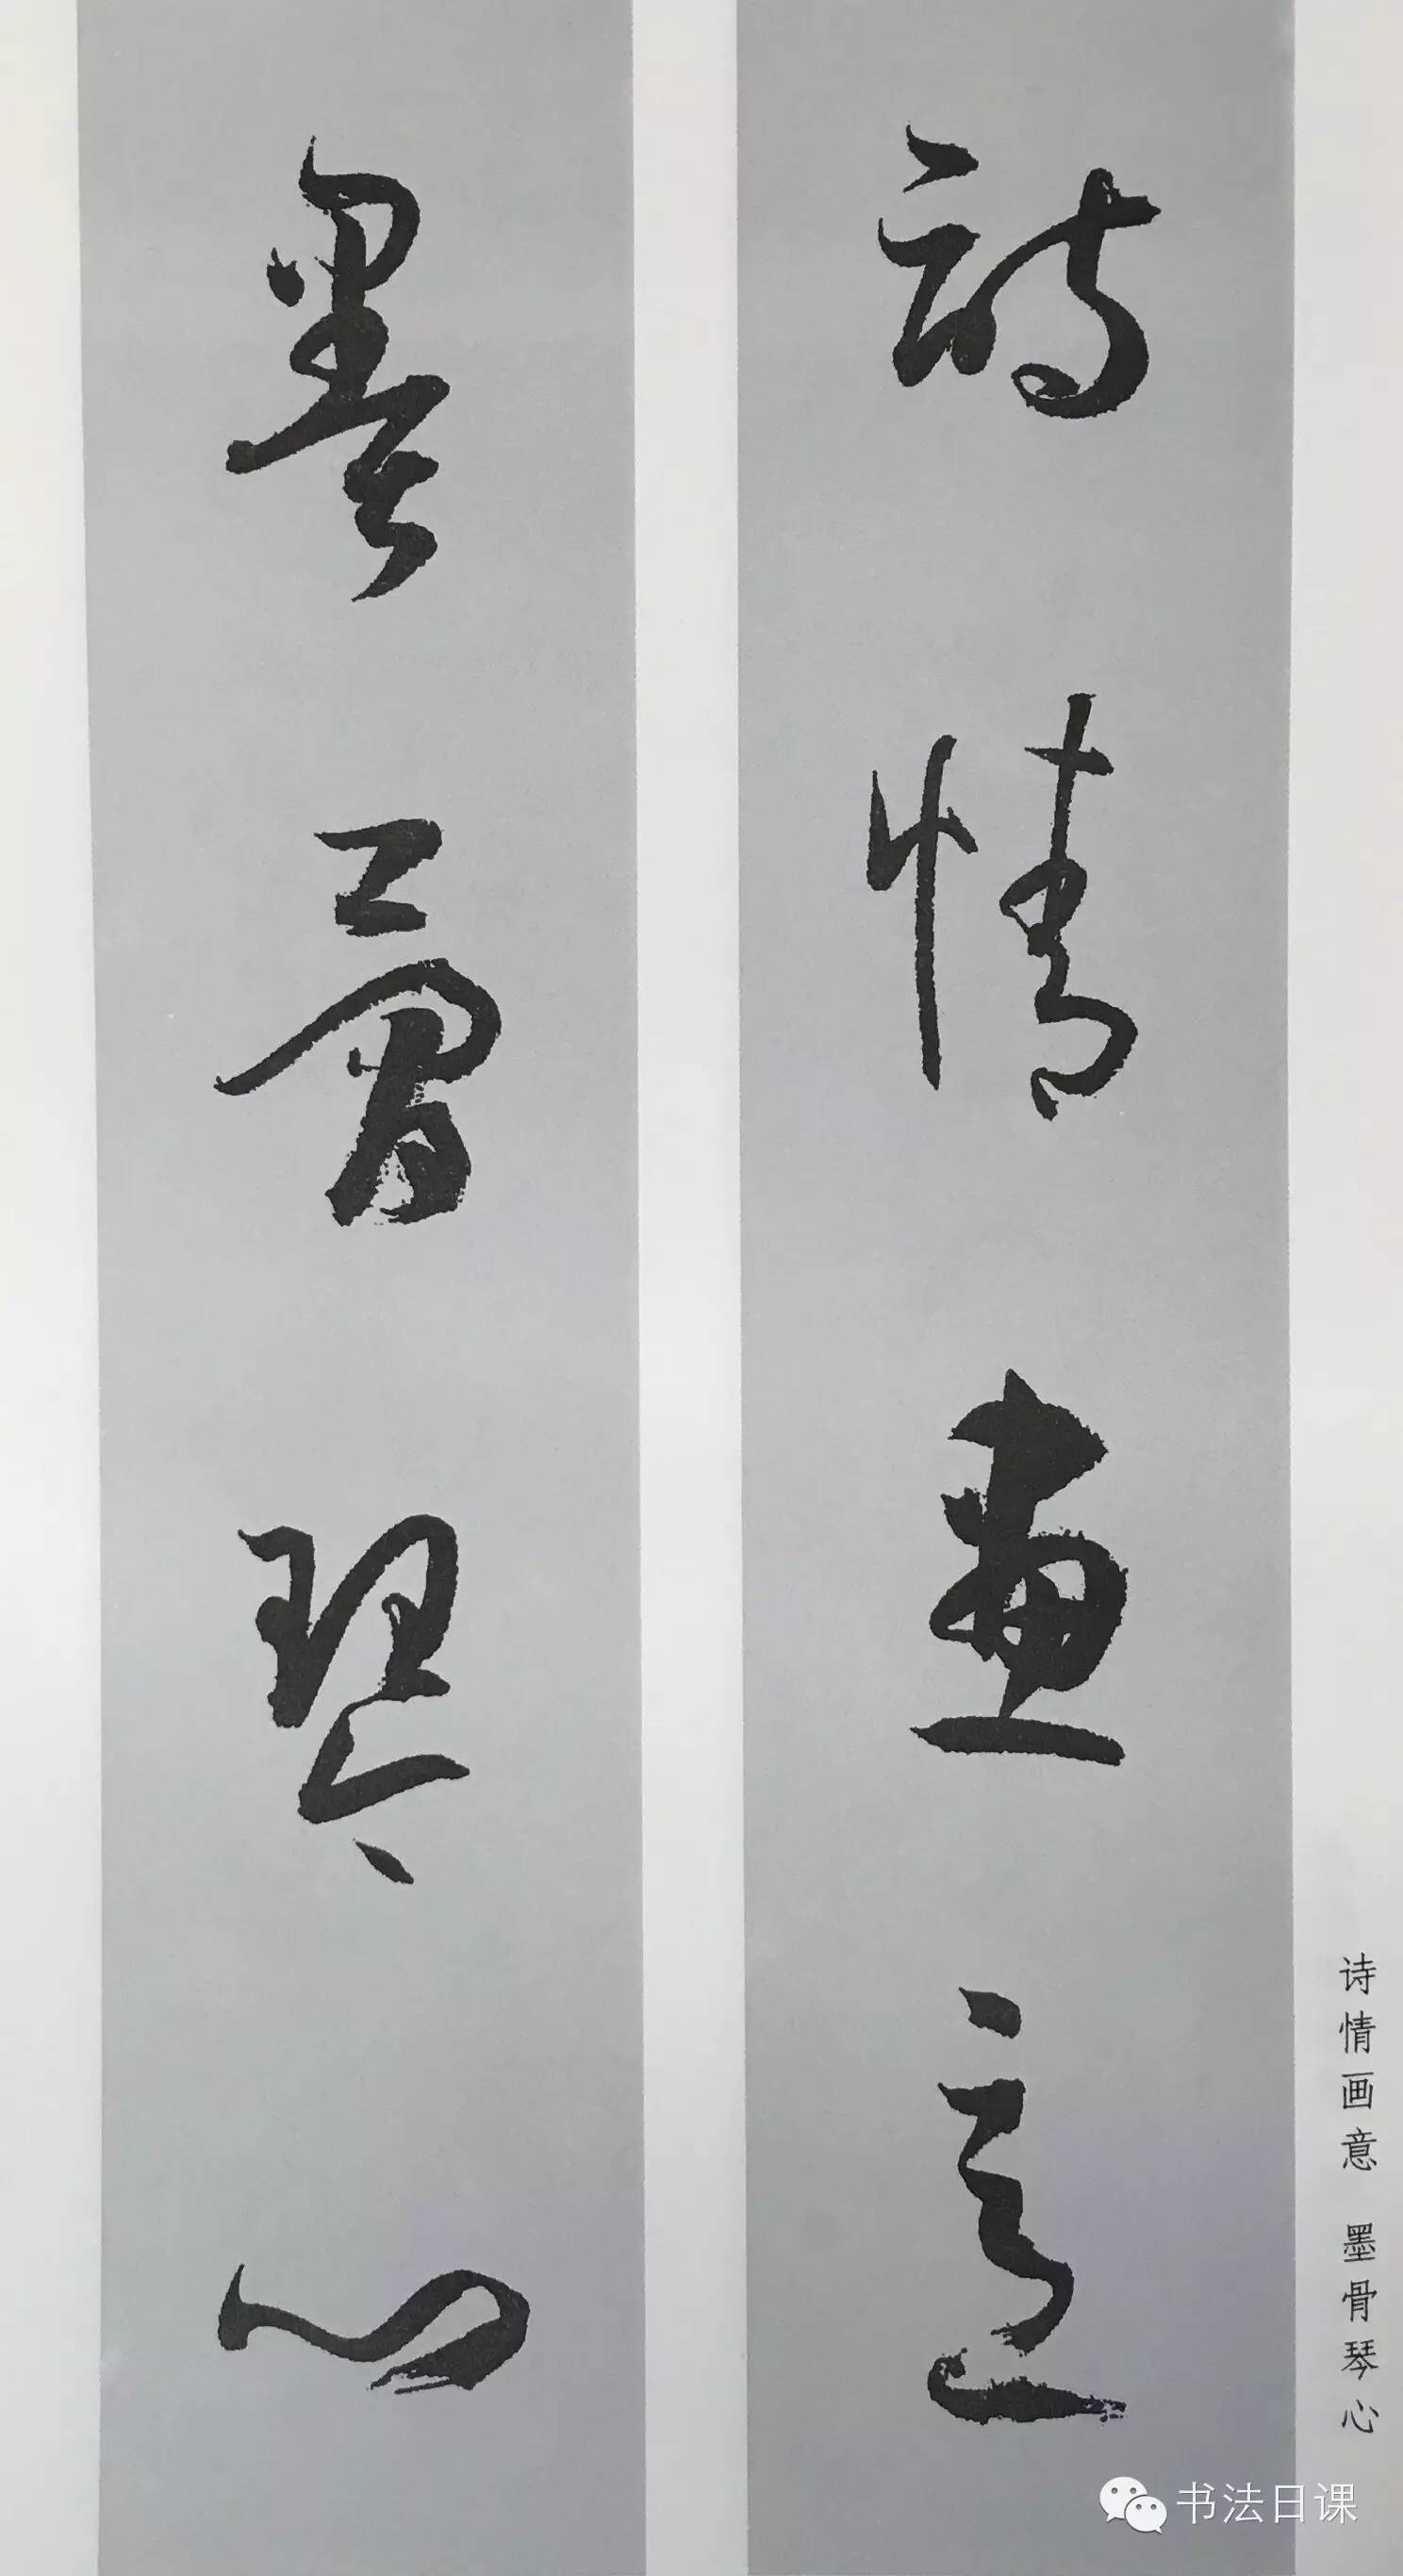 詩情畫意
墨骨琴心
诗情画意 墨骨琴心
书法日课